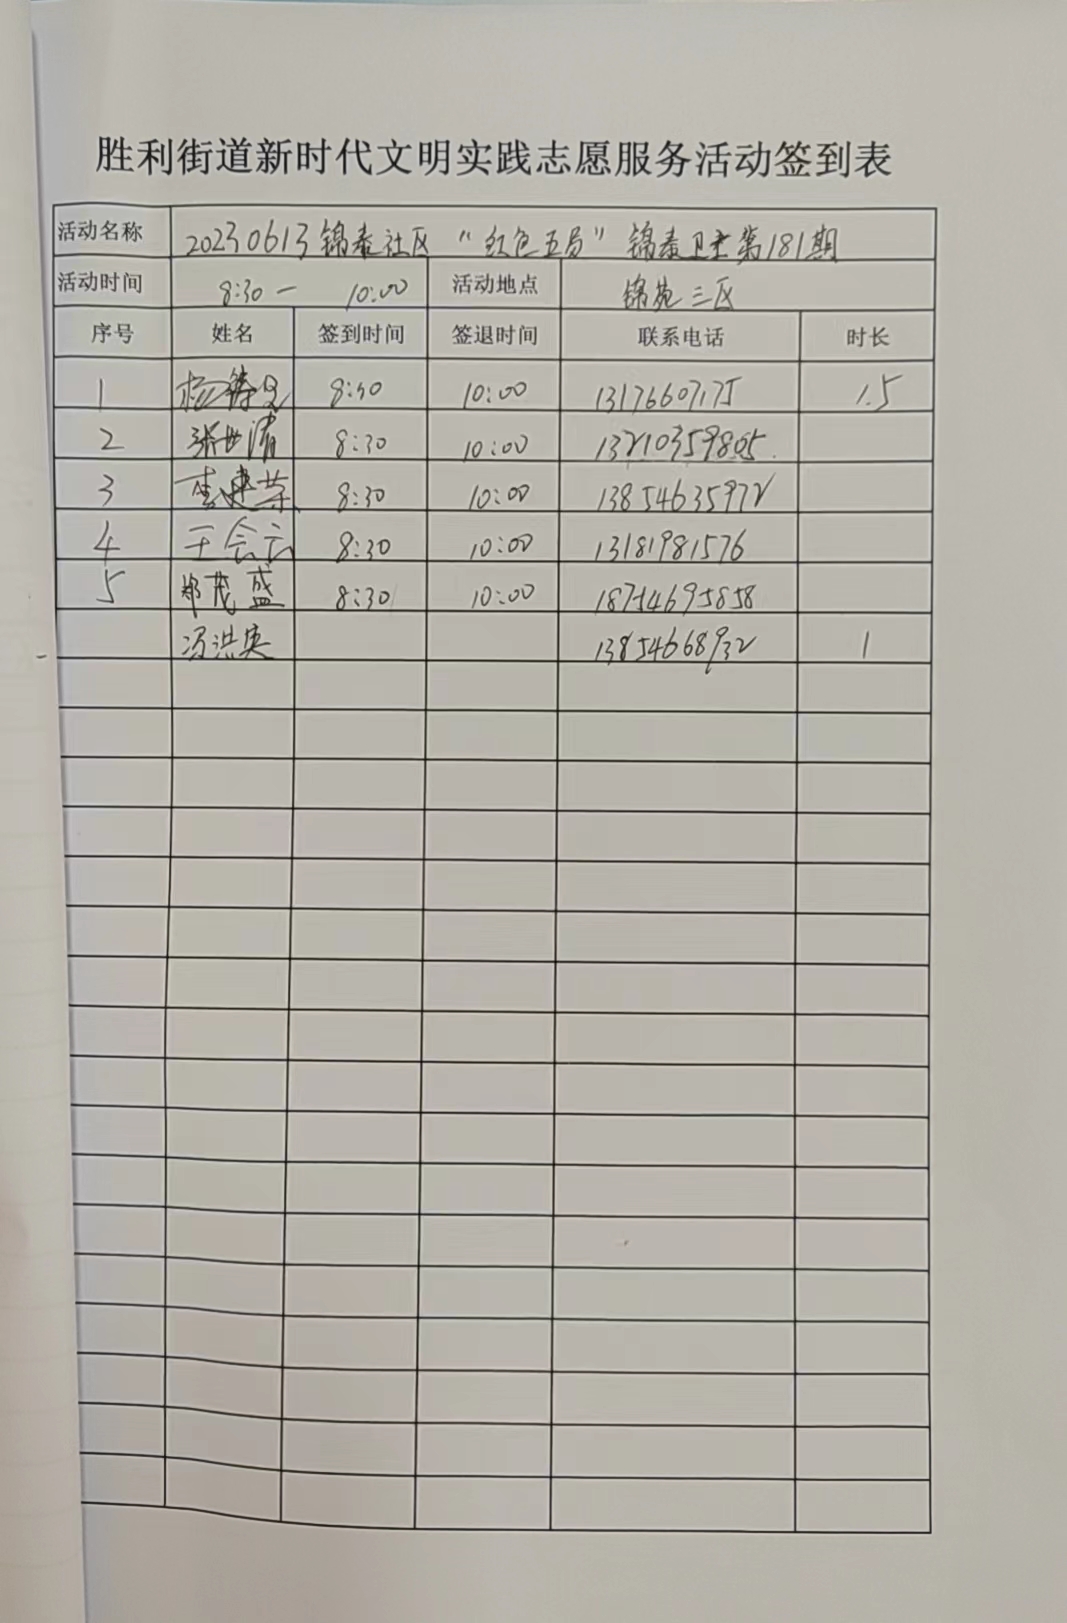 胜利街道新时代文明实践志愿服务活动签到表
活动名称 20230613锦泰社区“红色五局”锦泰卫士第181期
活动时间 8:30 — 10:00 活动地点 锦苑三区
序号 姓名 签到时间 签退时间 联系电话 时长
1 8:30 10:00 13176607175 1.5
2 张世清 8:30 10:00 13210359805
3 李建荣 8:30 10:00 13854635972
4 王会云 8:30 10:00 13181981576
5 郑茂盛 8:30 10:00 18754695858
冯洪英 13854668932 1